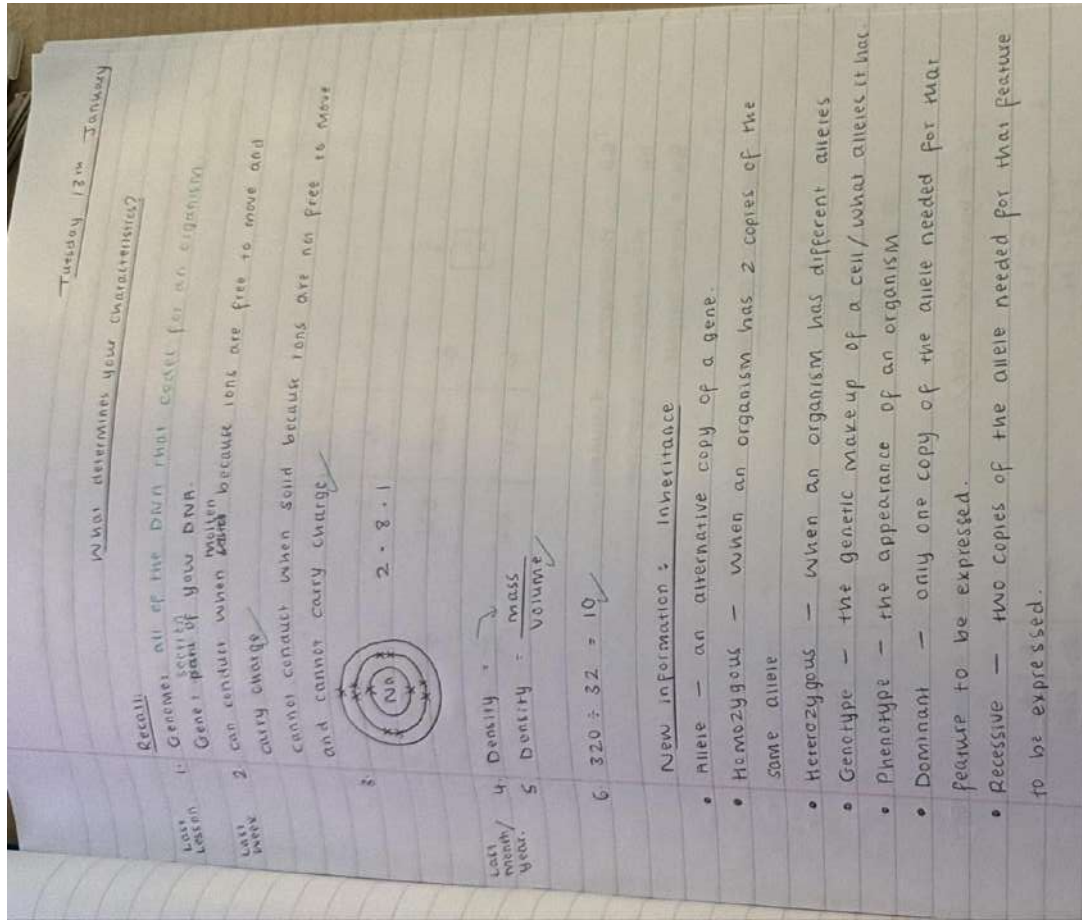 Tuesday 13th January
What determines your characteristics?
Recall:
Last Lesson 1. Genome: all of the DNA that codes for an organism
Gene: section of your DNA.
Last Week 2. can conduct when molten because ions are free to move and
carry charge
cannot conduct when solid because ions are not free to move
and cannot carry charge
3. Na 2.8.1
Last Month/Year. 4. Density =
5 Density = mass
volume
6 320 ÷ 32 = 10
New information: Inheritance
• Allele – an alternative copy of a gene.
• Homozygous – when an organism has 2 copies of the
same allele
• Heterozygous – when an organism has different alleles
• Genotype – the genetic makeup of a cell/what alleles it has.
• Phenotype – the appearance of an organism
• Dominant – only one copy of the allele needed for that
feature to be expressed.
• Recessive – two copies of the allele needed for that feature
to be expressed.